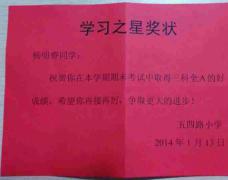 学习之星奖状
杨明睿同学:
祝贺你在本学期期末考试中取得三科全A的好
成绩。希望你再接再厉，争取更大的进步！
五四路小学
2014年1月13日